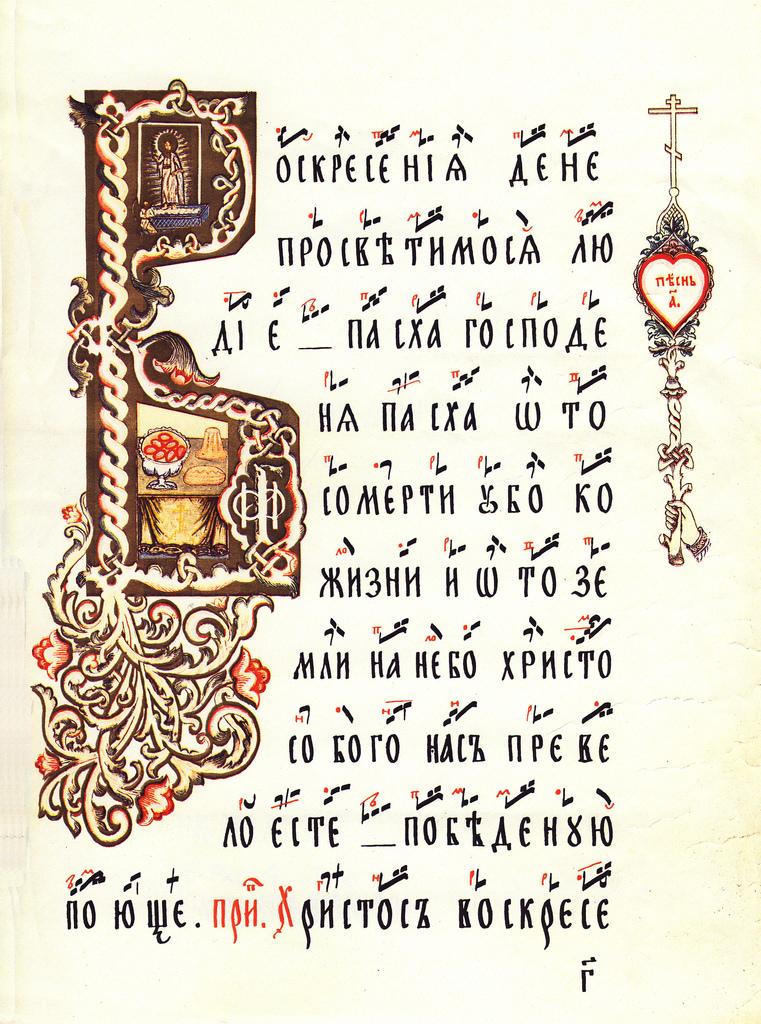 В оскресенїѧ дене
просвѣтимосѧ лю
дїе пасха господе
нѧ пасха ѿ то
сомерти ꙋбо ко
жизни и ѿ то зе
мли на небо христо
со бого насъ преве
ло есте побѣденꙋю
поюще. при. Христосъ воскресе
пѣснь
а҃.
г҃